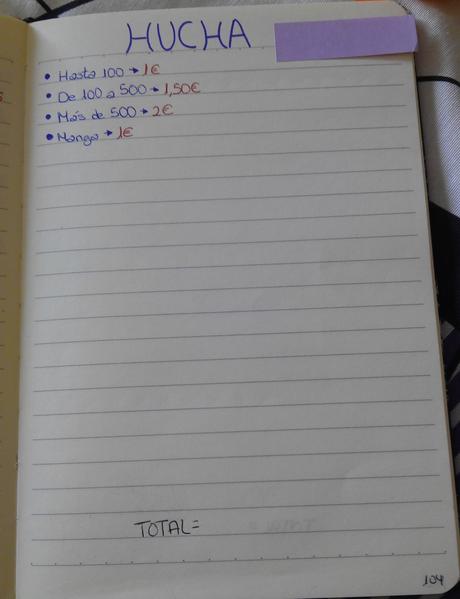 HUCHA
• Hasta 100 → 1€
• De 100 a 500 → 1,50€
• Más de 500 → 2€
• Manga → 1€
TOTAL=
104